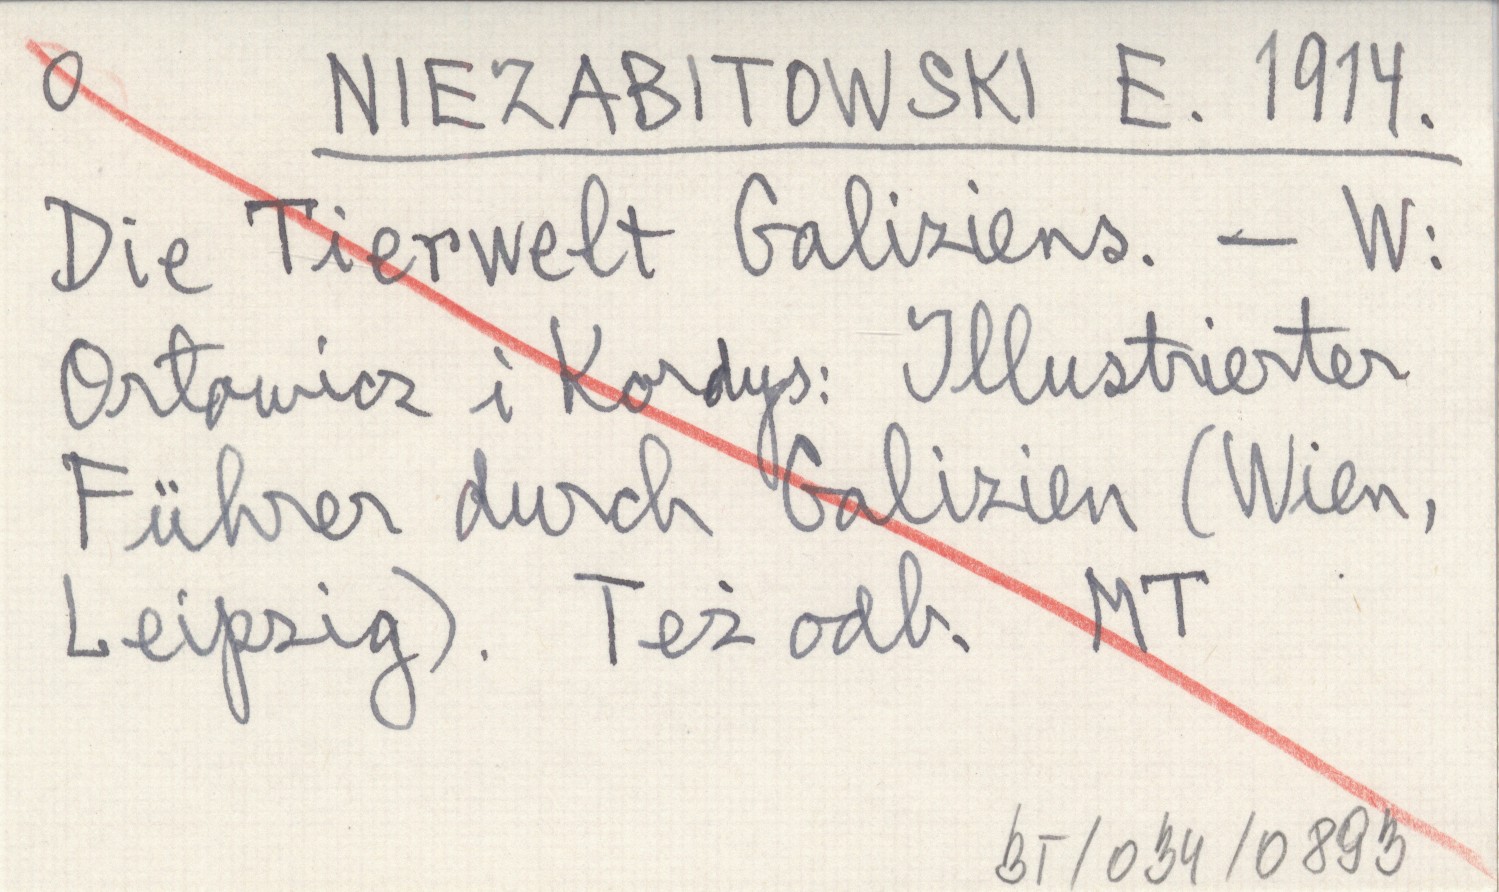 O NIEZABITOWSKI E. 1914.
Die Tierwelt Galiziens. — W:
Orłowicz i Kordys: Illustrierter
Führer durch Galizien (Wien,
Leipzig). Też odb. MT
BT/034/0893